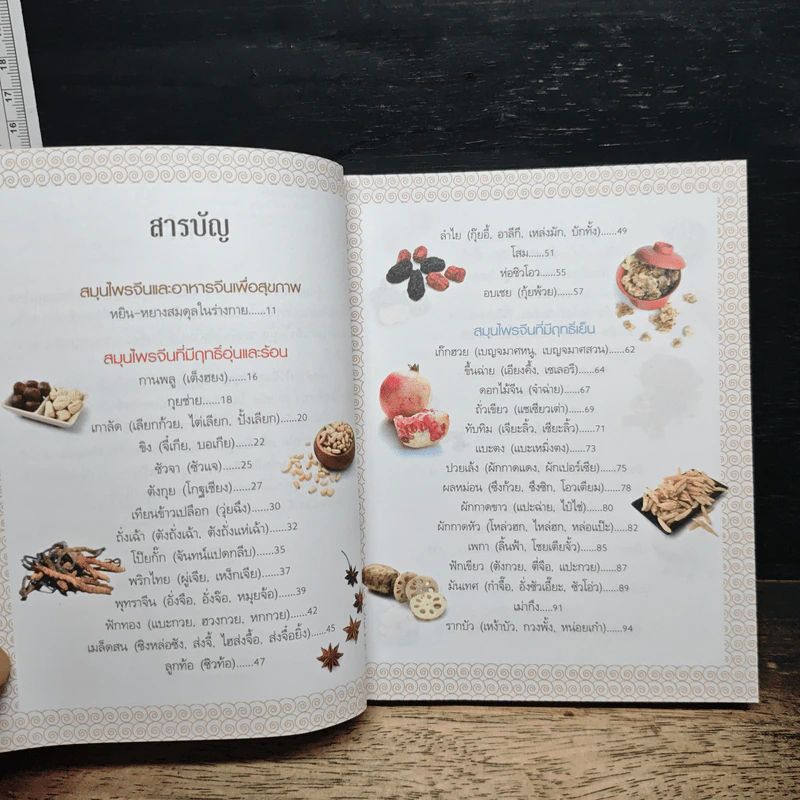 18
17
16
สารบัญ
สมุนไพรจีนและอาหารจีนเพื่อสุขภาพ
หยิน-หยางสมดุลในร่างกาย......11
สมุนไพรจีนที่มีฤทธิ์อุ่นและร้อน
กานพลู (เต็งฮยง)......16
กุยช่าย......18
เกาลัด (เลียกก้วย, ไต่เลียก, ปั้งเลียก)......20
ขิง (จี่เกีย, บอเกีย)......22
ชัวจา (ชัวแจ)......25
ตังกุย (โกฐเชียง)......27
เทียนข้าวเปลือก (วุ่ยฉึง)......30
ถั่งเฉ้า (ตังถั่งเฉ้า, ตังถั่งแห่เฉ้า)......32
โป๊ยกั๊ก (จันทน์แปดกลีบ)......35
พริกไทย (ผู่เจีย, เหง็กเจีย)......37
พุทราจีน (อั่งจือ, อั่งจ๊อ, หมุยจ้อ)......39
ฟักทอง (แบะกวย, ฮวงกวย, หกกวย)......42
เมล็ดสน (ซิงหล่อซัง, ส่งจี้, ไฮส่งจื้อ, ส่งจื่อยิ้ง)......45
ลูกท้อ (ซิวท้อ)......47
ลำไย (กุ๊ยอี้, อาลีกี, เหล่งมัก, บักทั้ง)......49
โสม......51
ห่อซิวโอว......55
อบเชย (กุ้ยพ้วย)......57
สมุนไพรจีนที่มีฤทธิ์เย็น
เก๊กฮวย (เบญจมาศหนู, เบญจมาศสวน)......62
ขึ้นฉ่าย (เอียงคึ้ง, เซเลอรี)......64
ดอกไม้จีน (จำฉ่าย)......67
ถั่วเขียว (แชเชียวเต่า)......69
ทับทิม (เจียะลิ้ว, เซียะลิ้ว)......71
แบะตง (แบะเหมิ่งตง)......73
ปวยเล้ง (ผักกาดแดง, ผักเปอร์เซีย)......75
ผลหม่อน (ซึ่งก้วย, ซึงซิก, โอวเตียม)......78
ผักกาดขาว (แปะฉ่าย, ไป๋ไช่)......80
ผักกาดหัว (ไหล่วฮก, ไหล่ฮก, หล่อแป๊ะ)......82
เพกา (ลิ้นฟ้า, โชยเตียจั้ว)......85
ฟักเขียว (ตังกวย, ตี่จือ, แปะกวย)......87
มันเทศ (กำจื๊อ, อั่งชัวเอี๊ยะ, ชัวโอ่ว)......89
เม่ากึง......91
รากบัว (เหง้าบัว, กวงพั้ง, หน่อยเก๋า)......94